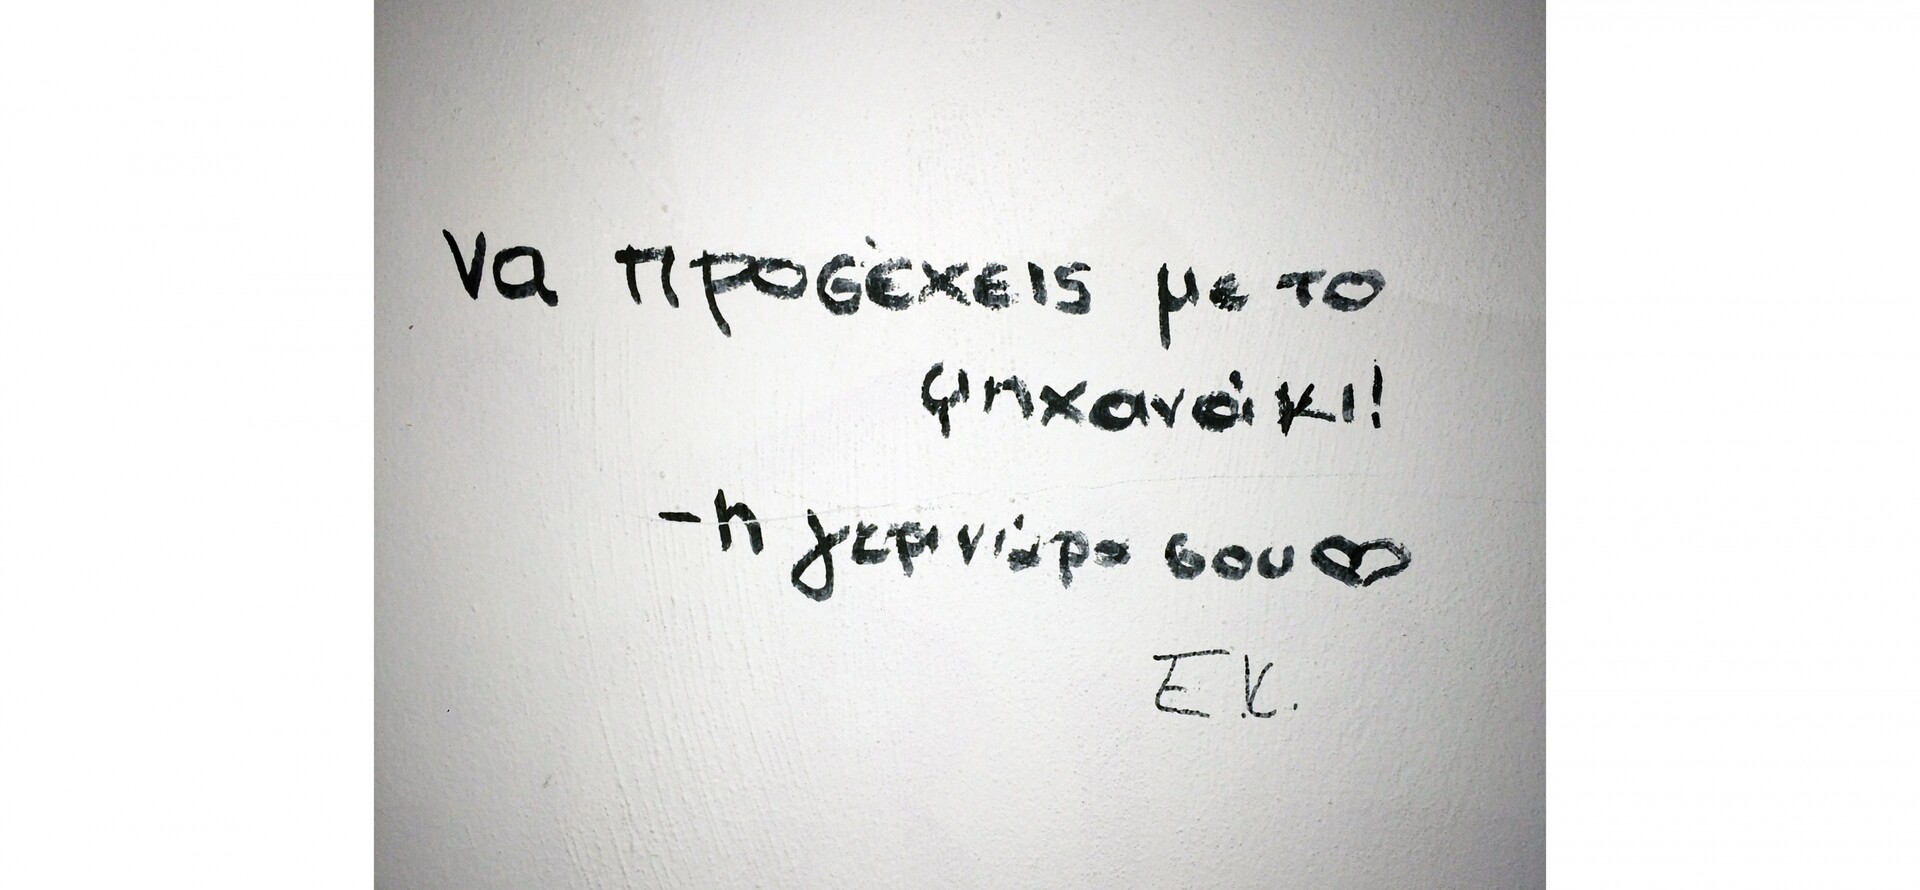 να προσέχεις με το
μηχανάκι!
-η γερινιώρα σου
Ε.Κ.